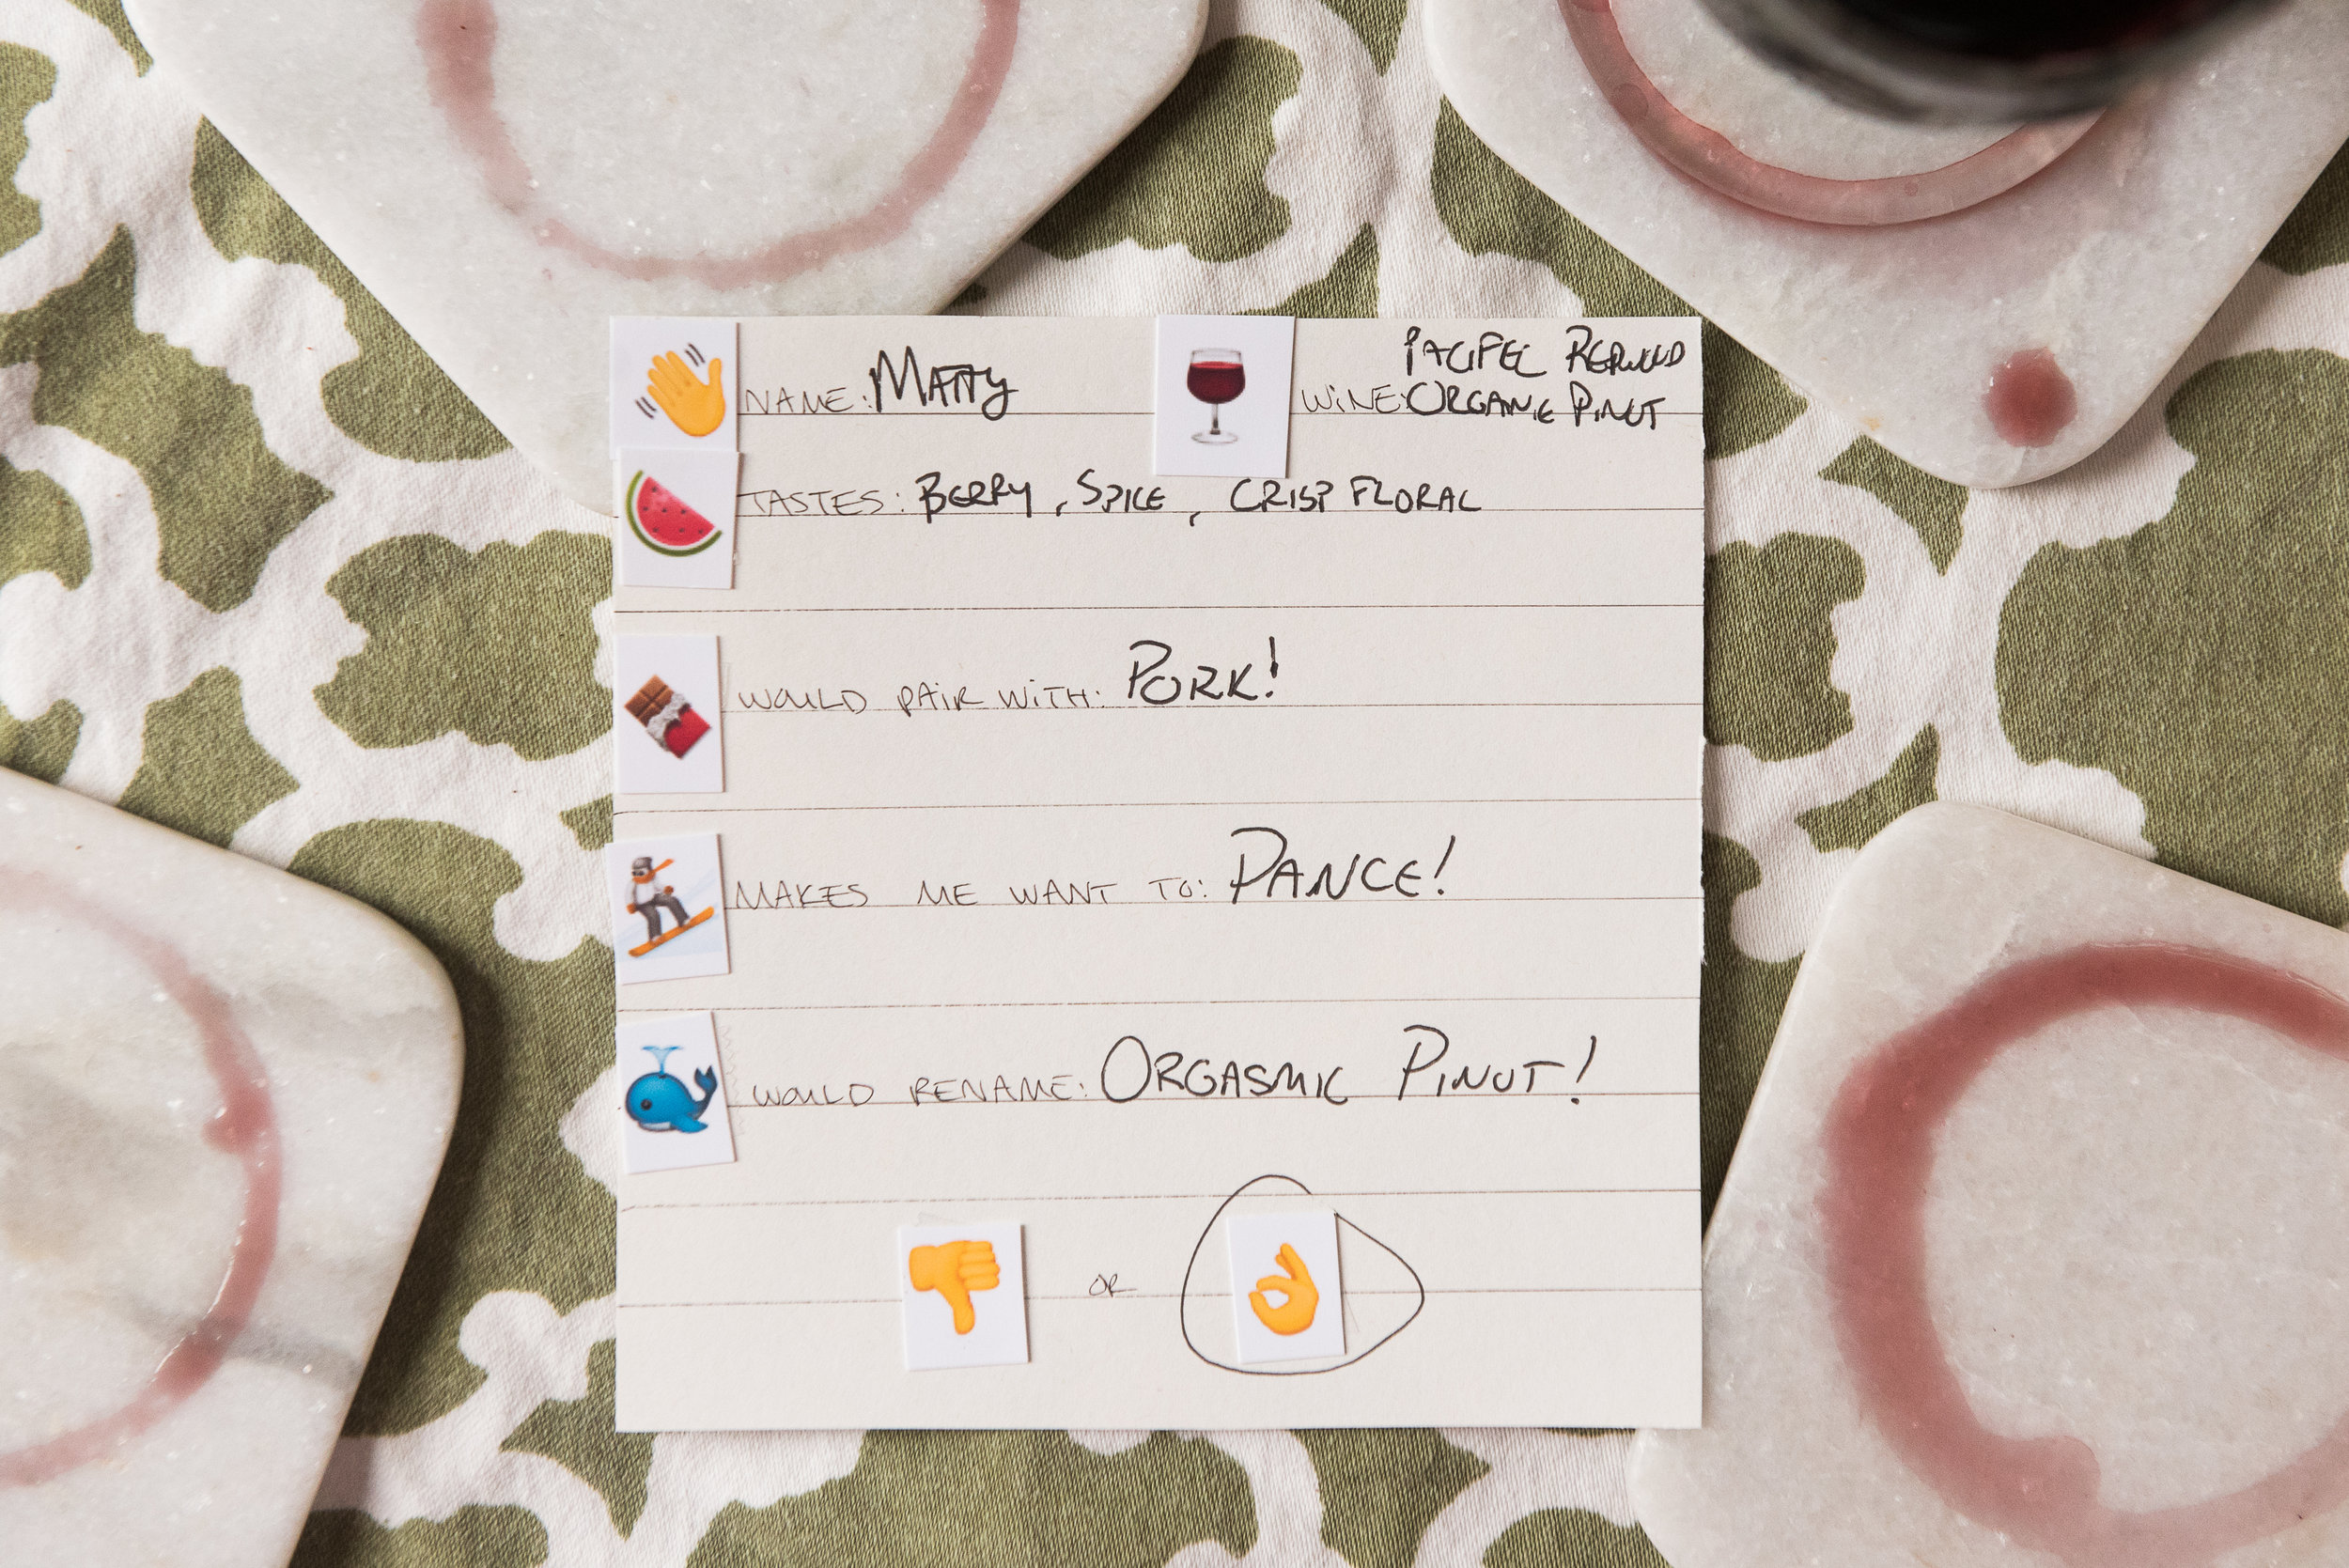 NAME: MATTY
PACIFIC REDWOOD
WINE: ORGANIC PINOT
TASTES: BERRY, SPICE, CRISP FLORAL
WOULD PAIR WITH: PORK!
MAKES ME WANT TO: DANCE!
WOULD RENAME: ORGASMIC PINOT!
OR